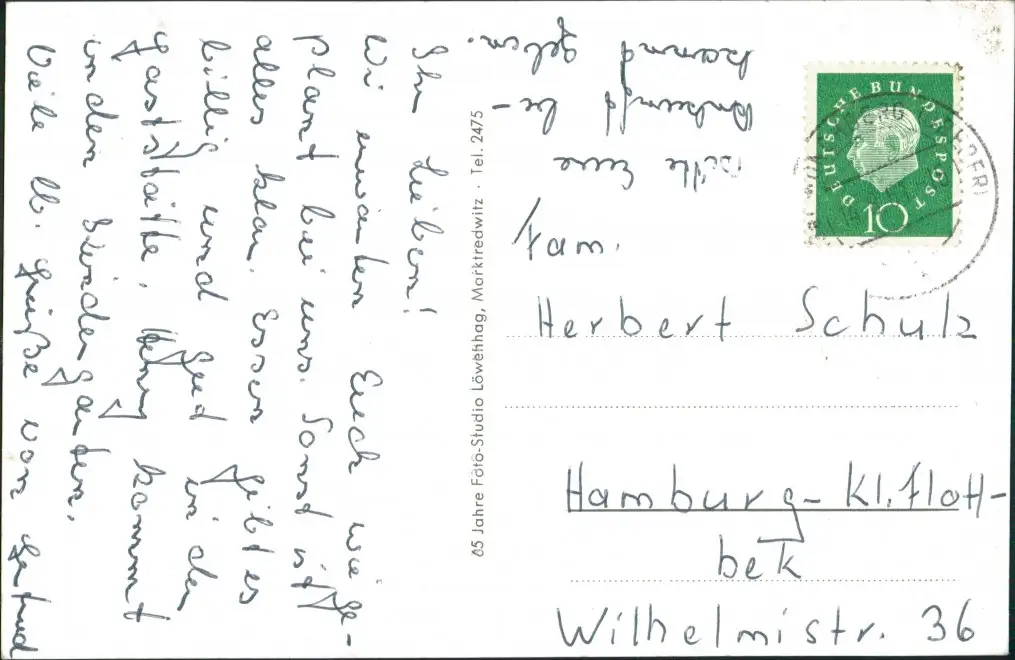 Ihr Lieben!
Wi erwarten Euch wie ge-
plant bei uns. Sonst ist
alles klar. Essen gibt es
billig und gut in der
Gaststätte. kommt
in den Kindergarten.
Viele lb. Grüße von Gertrud
Bitte Eure
Ankunft be-
kannt
geben.
Jahre Foto-Studio Marktredwitz · Tel. 2475
DEUTSCHE BUNDESPOST
10
Fam.
Herbert Schulz
Hamburg-Kl. Flott-
bek
Wilhelmistr. 36